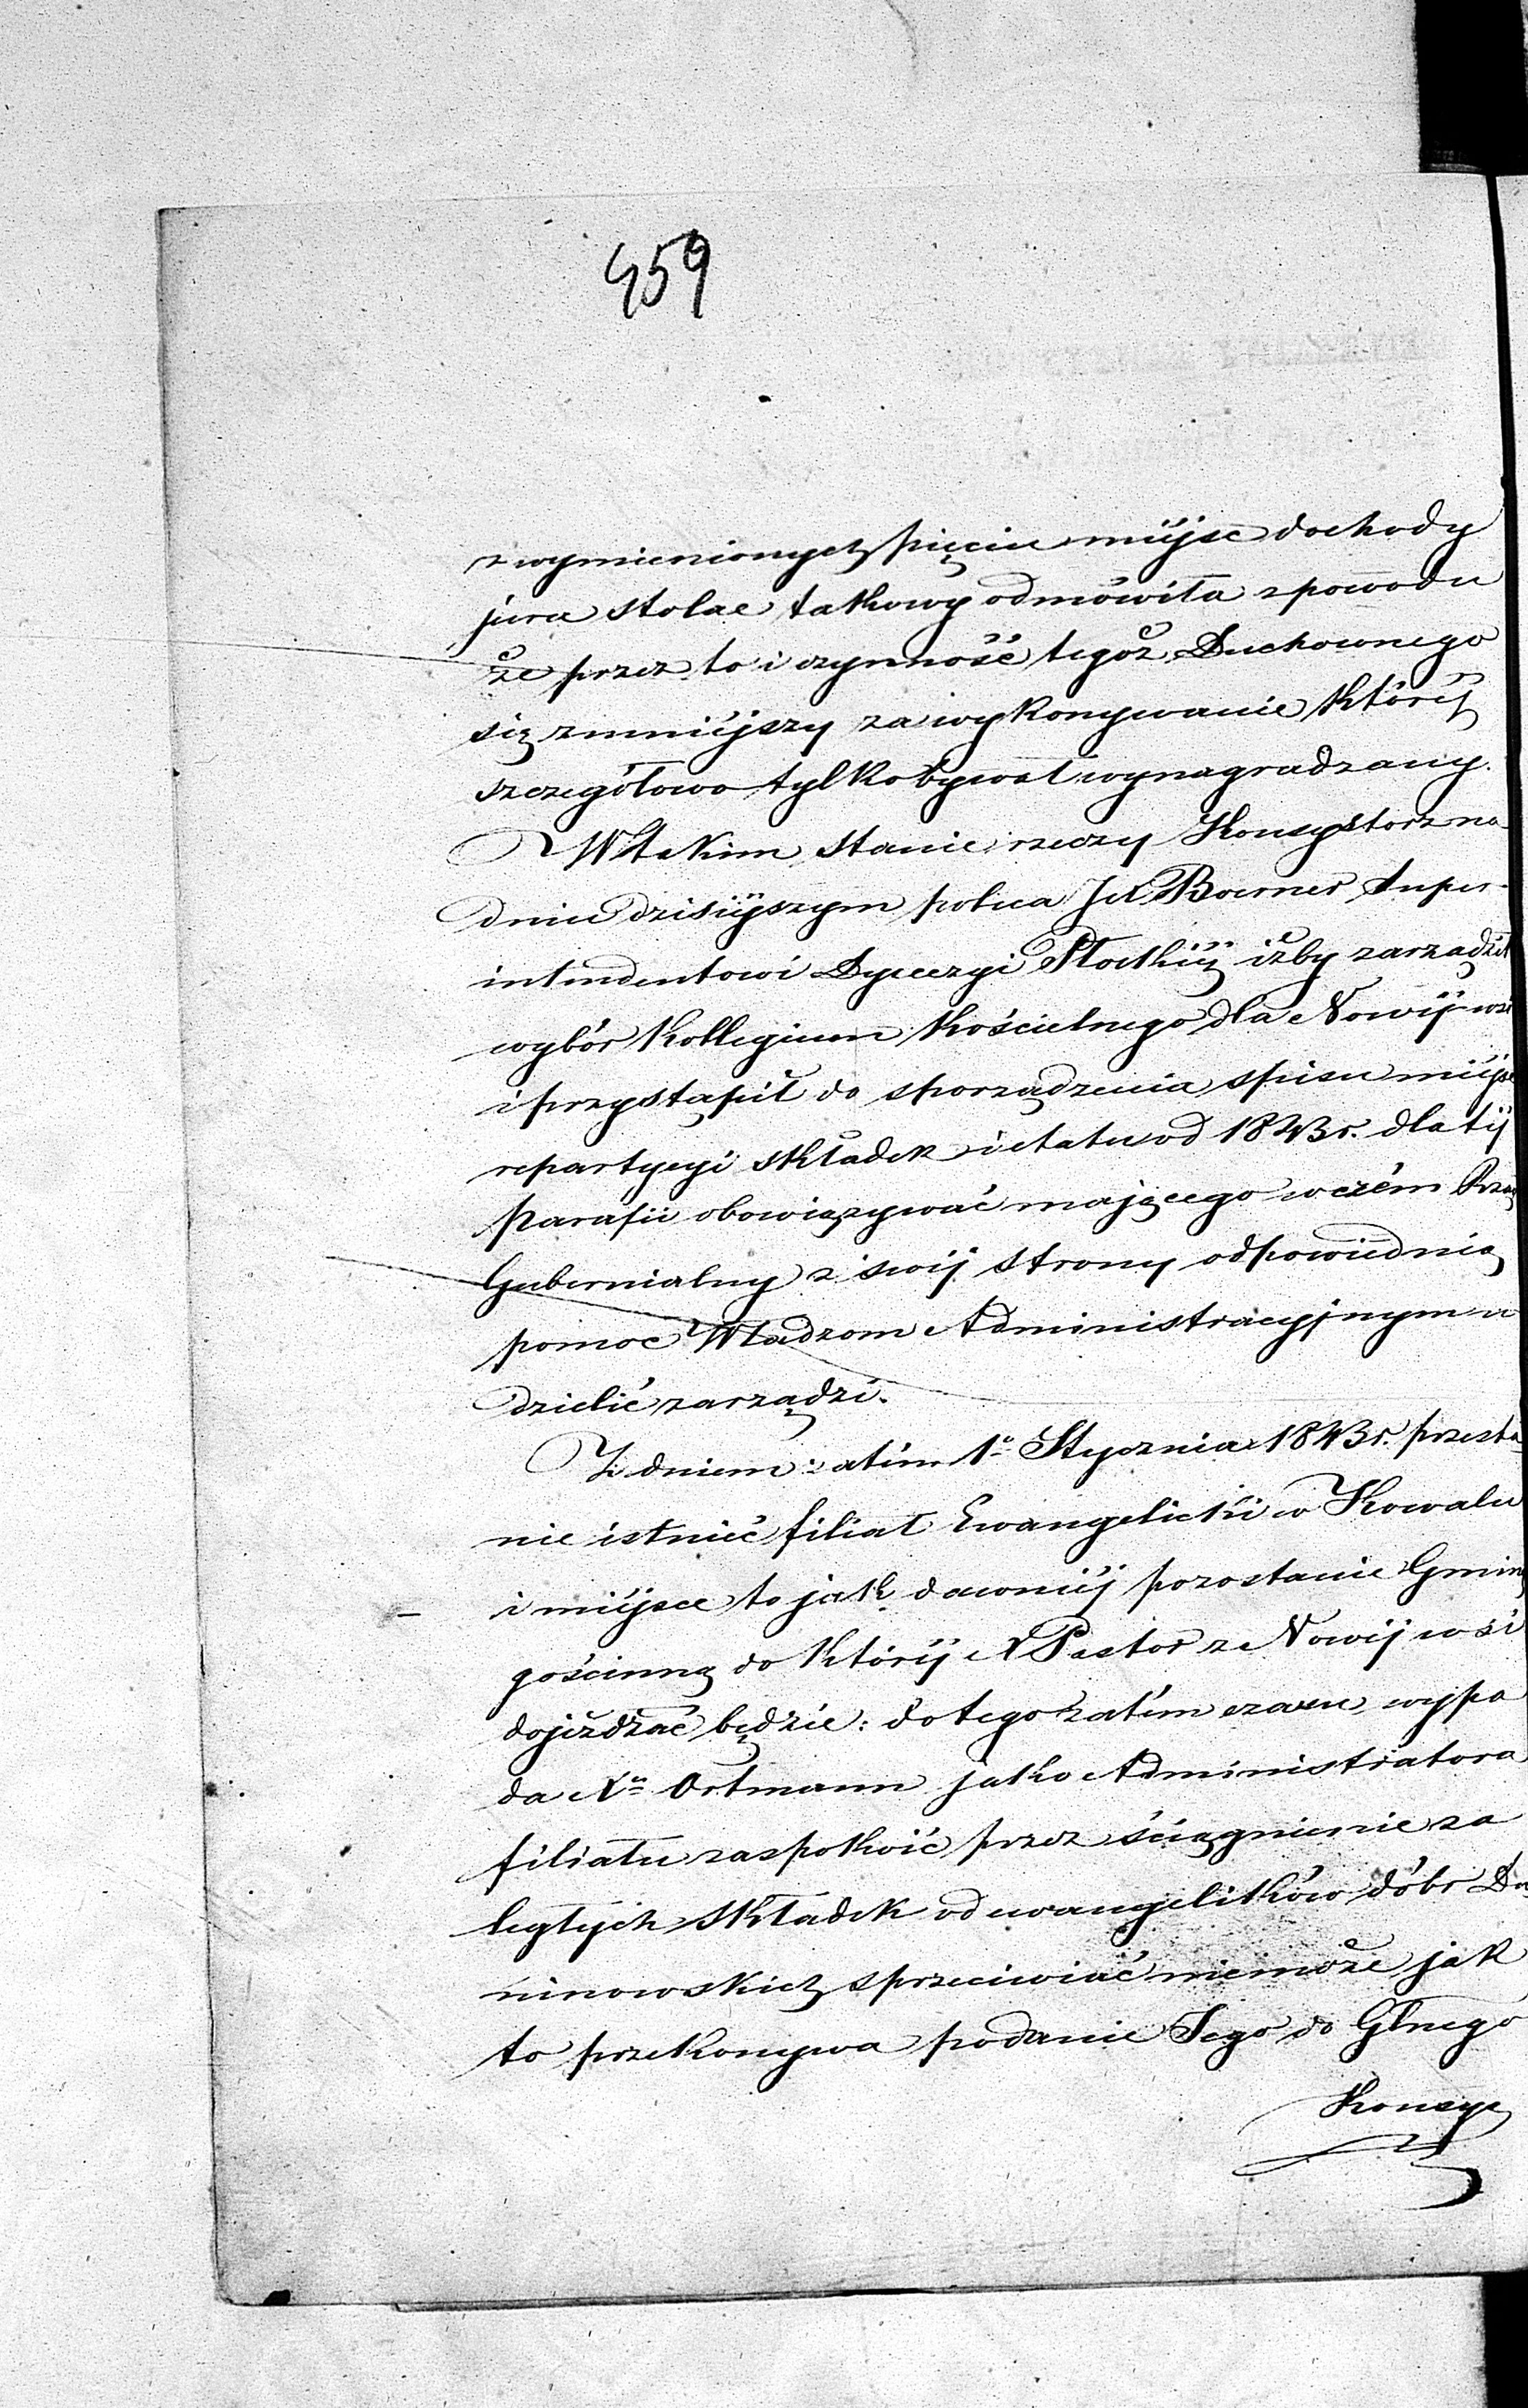 459
z wymienionych pięciu miéjsc dochody
jura stolae takowy odmówiła z powodu
że przez to i czynność tegoż Duchownego
się zmniéjszy za wykonywanie któréj
szczegółowo tylko bywał wynagradzany.
W takim stanie rzeczy Konsystorz na
dniu dzisiéjszym poleca JX Boerner Super-
intendentowi Dyecezyi Płockiéj iżby zarządził
wybór Kollegium Kościelnego dla Nowéj-wsi
i przystąpił do sporządzenia spisu miéjsc
repartycyi składek i etatu od 1843 r. dla téj
Parafii obowiązywać mającego w czém Rząd
Gubernialny z swéj strony odpowiednią
pomoc Władzom Administracyjnym u
dzielić zarządzi.
Z dniem zatém 1º Stycznia 1843 r. przesta
nie istnieć filiał Ewangelicki w Kowalu
i miéjsce to jak dawniéj pozostanie Gminą
gościnną do któréj X Pastor z Nowéj wsi
dojeżdżać będzie: do tego zatém czasu wypa
da Xa Ortmann jako Administratora
filiału zaspokoić przez ściągnienie za
ległych składek od ewangelików dóbr Du
ninowskich sprzeciwiać niemoże jak
to przekonywa podanie Jego do Głnego
Konsys